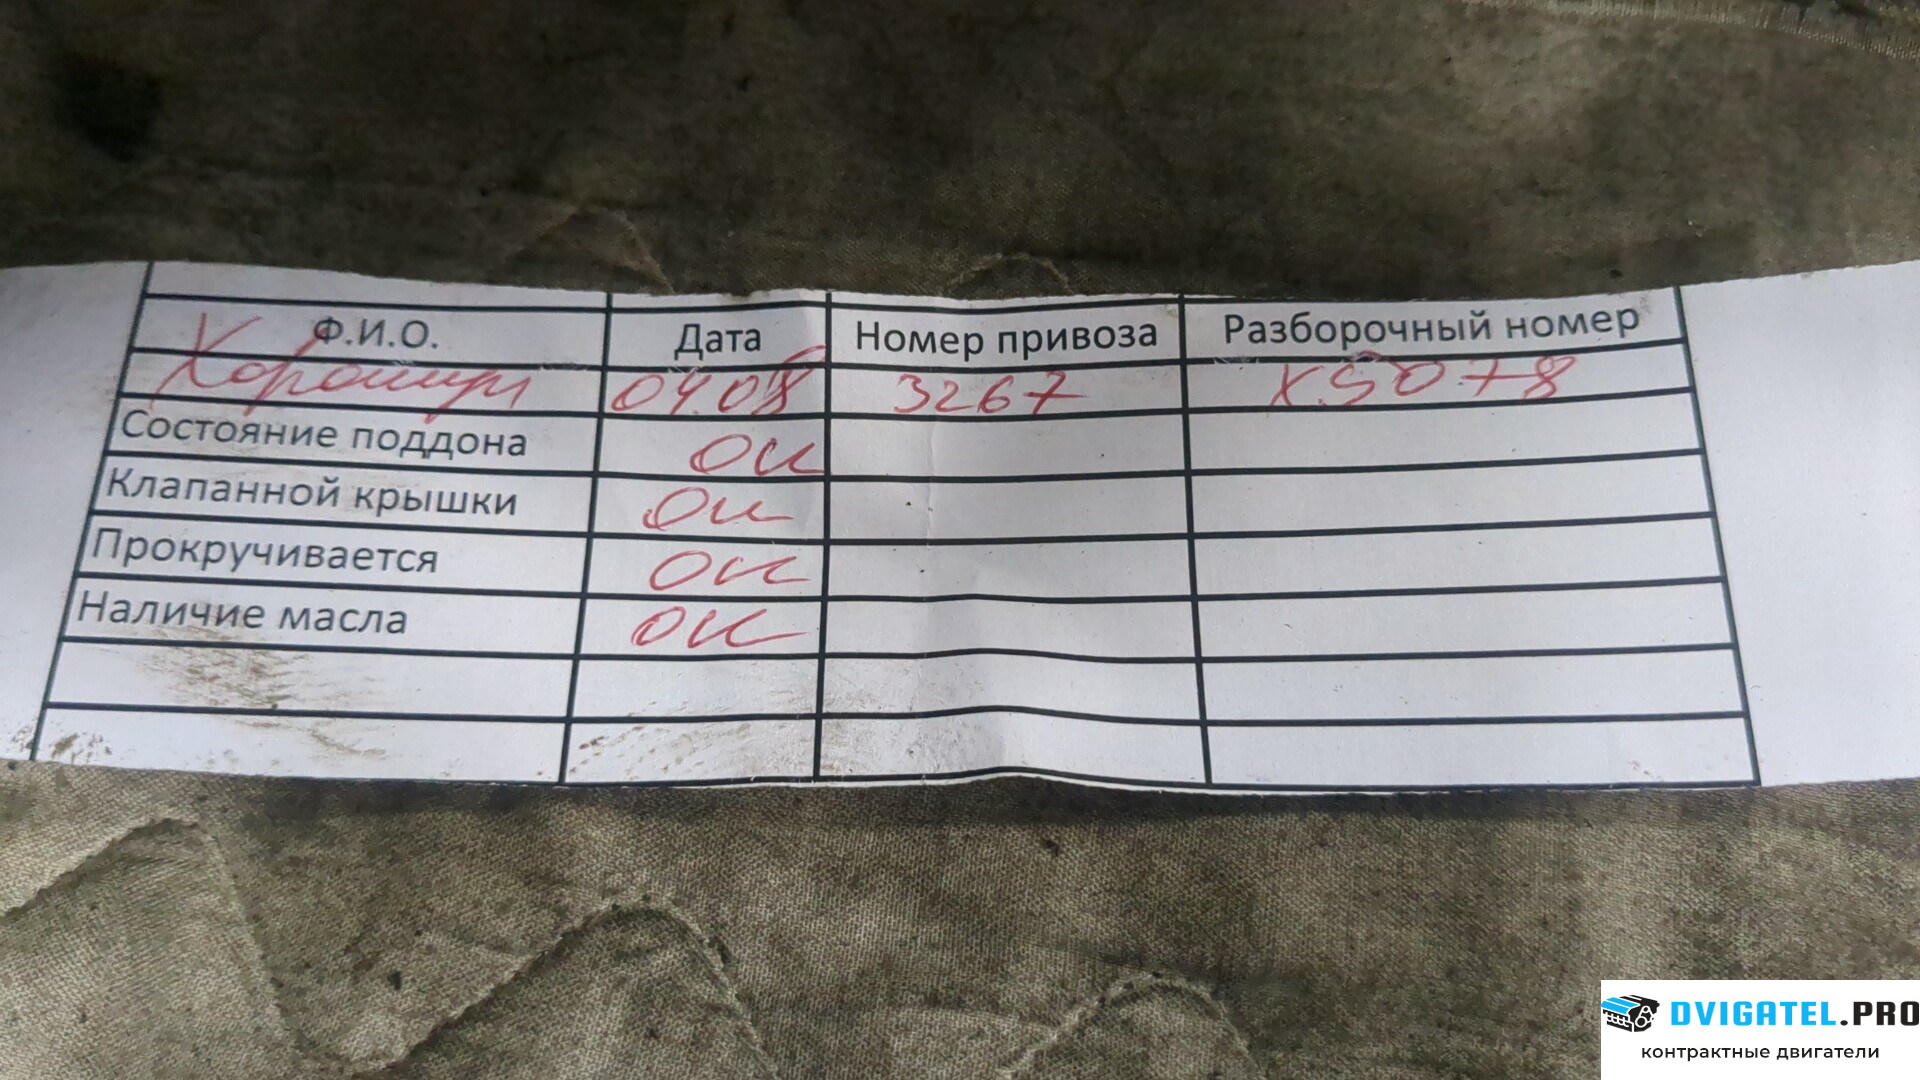 Ф.И.О. Дата Номер привоза Разборочный номер
04.08 3267 X5078
Состояние поддона ок
Клапанной крышки ок
Прокручивается ок
Наличие масла ок
DVIGATEL.PRO
контрактные двигатели